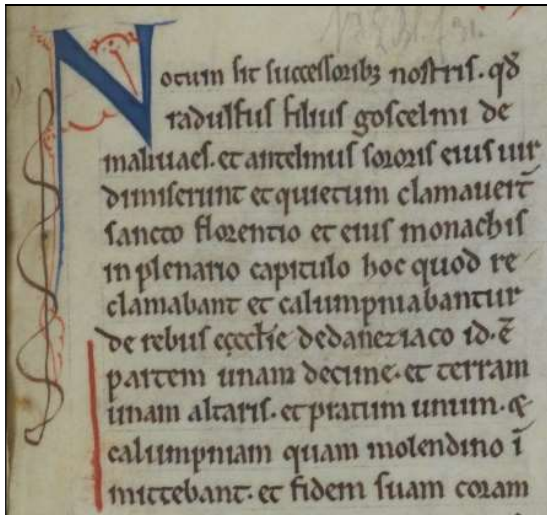 Notum sit successoribꝫ nostris. qđ
radulfus filius goscelmi de
malivaes. et antelmus sororis eius vir
dimiserunt et quietum clamavert̄
sancto florentio et eius monachis
in plenario capitulo hoc quod re
clamabant et calumpniabantur
de rebus ęcctłie dedaneziaco id. ē
partem unam decime. et terram
unam altaris. et pratum unum. &
calumpniam quam molendino ī
mittebant. et fidem suam coram